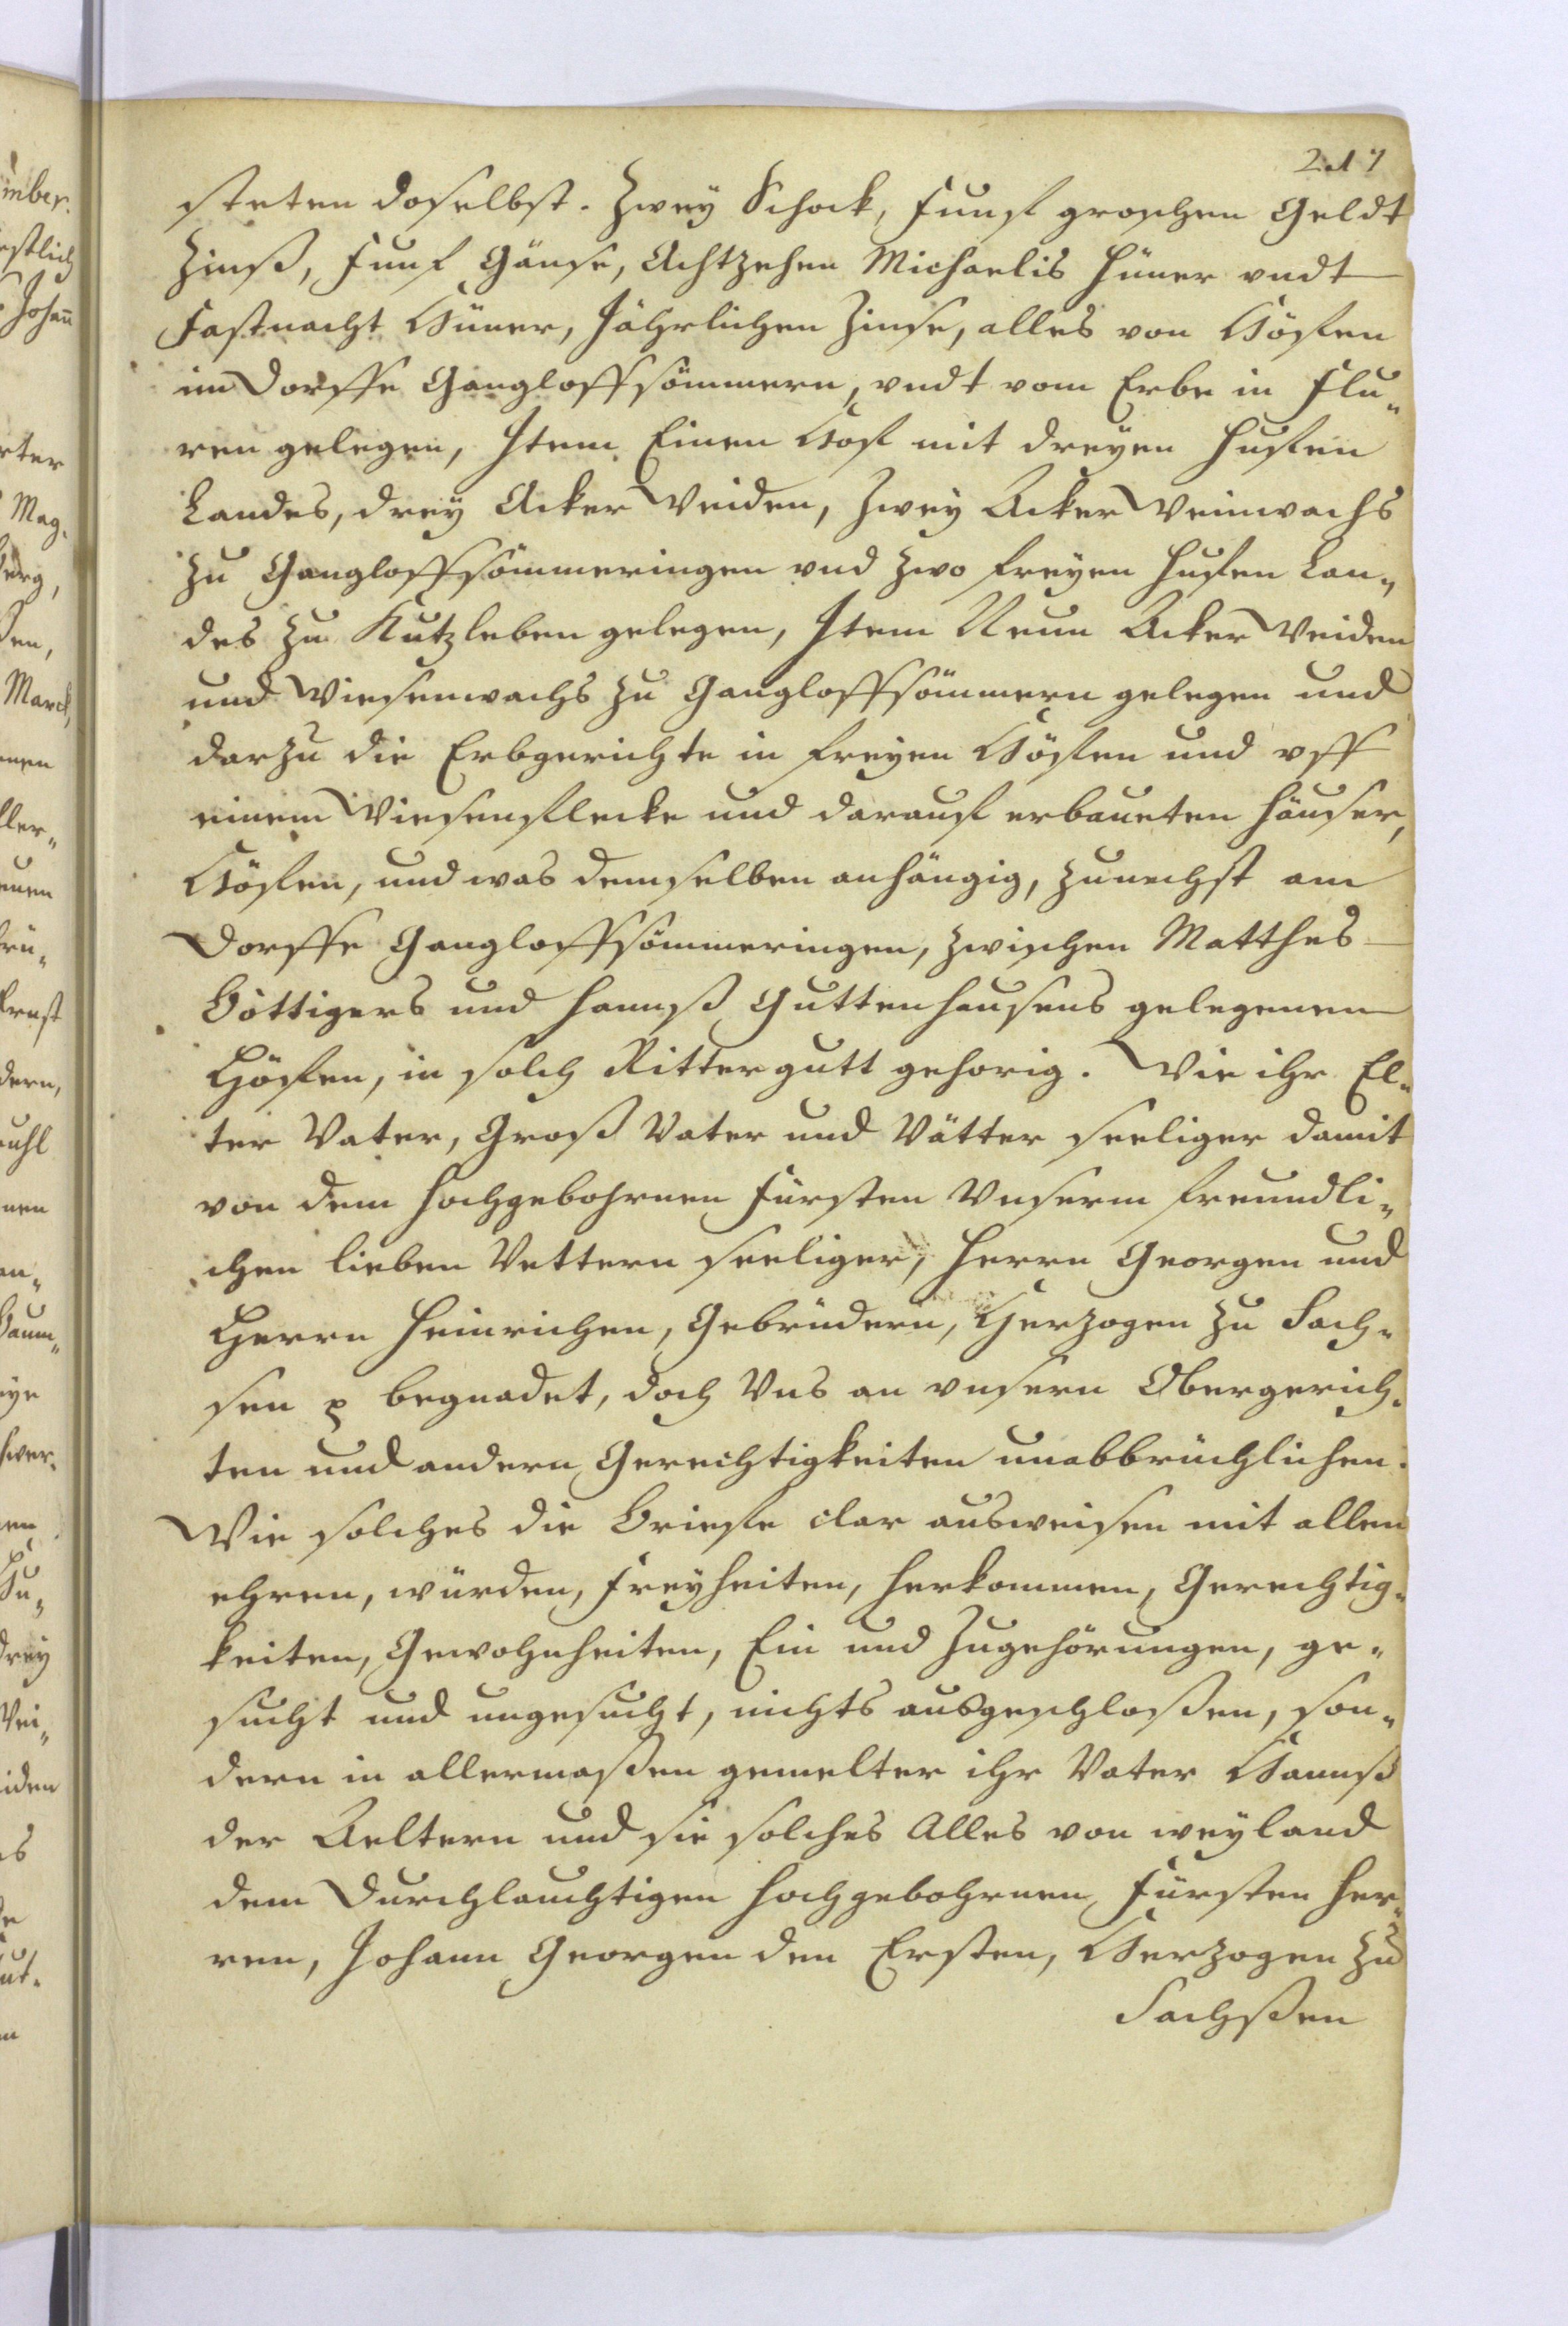 217
steten doselbst. Zwey Schock, funf groschen Geldt
Zinß, funf Gänse, Achtzehen Michaelis Hüner vndt
Fastnacht Hüner, Jährlichen Zinse, alles von Höffen
im Dorffe Gangloffsömmern, vndt vom Erbe in Flu„
ren gelegen, Item Einen Hof mit dreyen Huffen
Landes, drey Acker Weiden, Zwey Acker Weinwachs
zu Gangloffsömmeringen vnd zwo freyen Huffen Lan„
des zu Kutzleben gelegen, Item Neun Acker Weiden
und Wiesenwachs zu Gangloffsömmern gelegen und
darzu die Erbgerichte in freyen Höffen und vff
einem Wiesenflecke und darauf erbaueten Häuser,
Höffen, und was demselben anhängig, zunechst am
Dorffe Gangloffsömmeringen, zwischen Matthes
Böttigers und Hannß Guttenhausens gelegenen
Höffen, in solch Rittergutt gehorig. Wie ihr El„
ter Vater, Groß Vater und Vätter seeliger damit
von dem Hochgebohrnen Fürsten Vnserm freundli„
chen lieben Vettern seeliger, Herrn Georgen und
Herrn Heinrichen, Gebrüdern, Herzogen zu Sach„
sen p begnadet, doch Vns an vnsern Obergerich„
ten und andern Gerechtigkeiten unabbrüchlichen.
Wie solches die Brieffe clar ausweisen mit allen
ehren, würden, Freyheiten, Herkommen, Gerechtig„
keiten, Gewohnheiten, Ein und Zugehörungen, ge„
sucht und ungesucht, nichts ausgeschloßen, son„
dern in allermaßen gemelter ihr Vater Hannß
der Aeltern und sie solches Alles von weyland
dem Durchlauchtigen Hochgebohrnen Fürsten Her„
ren, Johann Georgen den Ersten, Herzogen zu
Sachßen